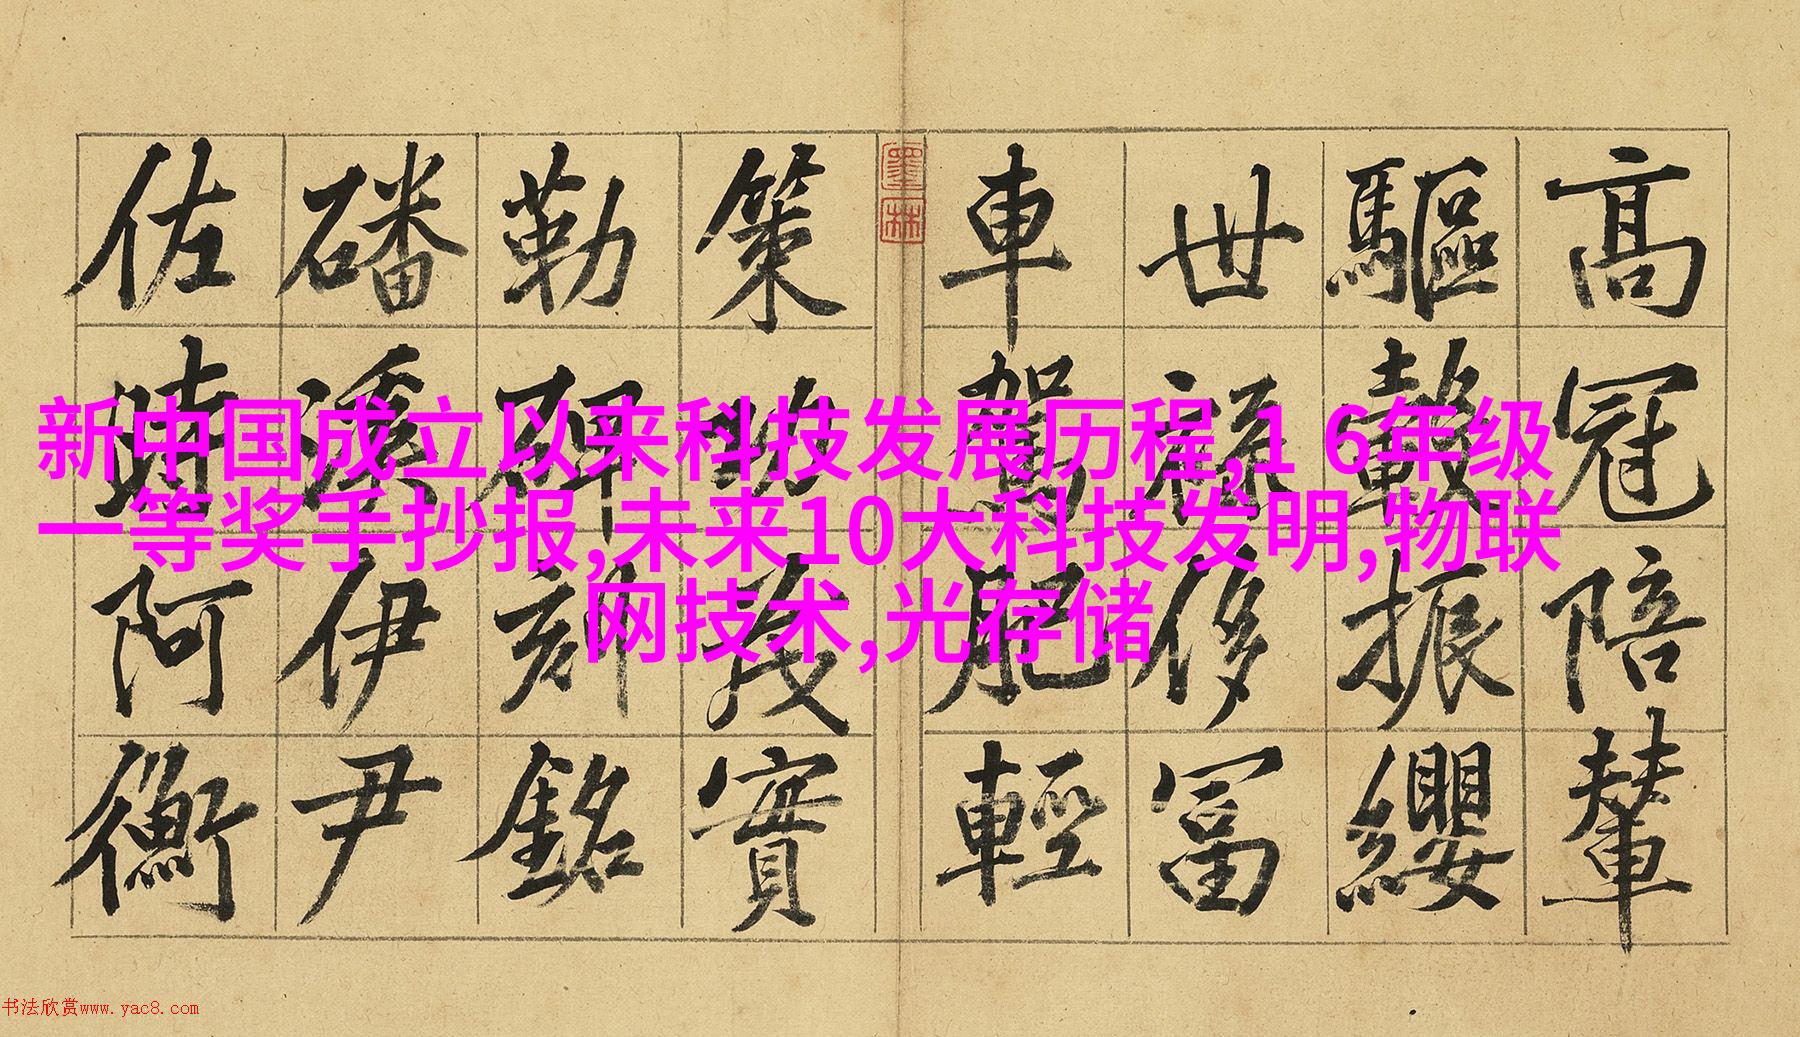 新中国成立以来科技发展历程,1 6年级
一等奖手抄报,未来10大科技发明,物联
网技术,光存储
高冠陪輦
驅轂振纓
世祿侈富
車駕肥輕
墨林
策功茂實
勒碑刻銘
磻溪伊尹
佐時阿衡
书法欣赏www.yac8.com